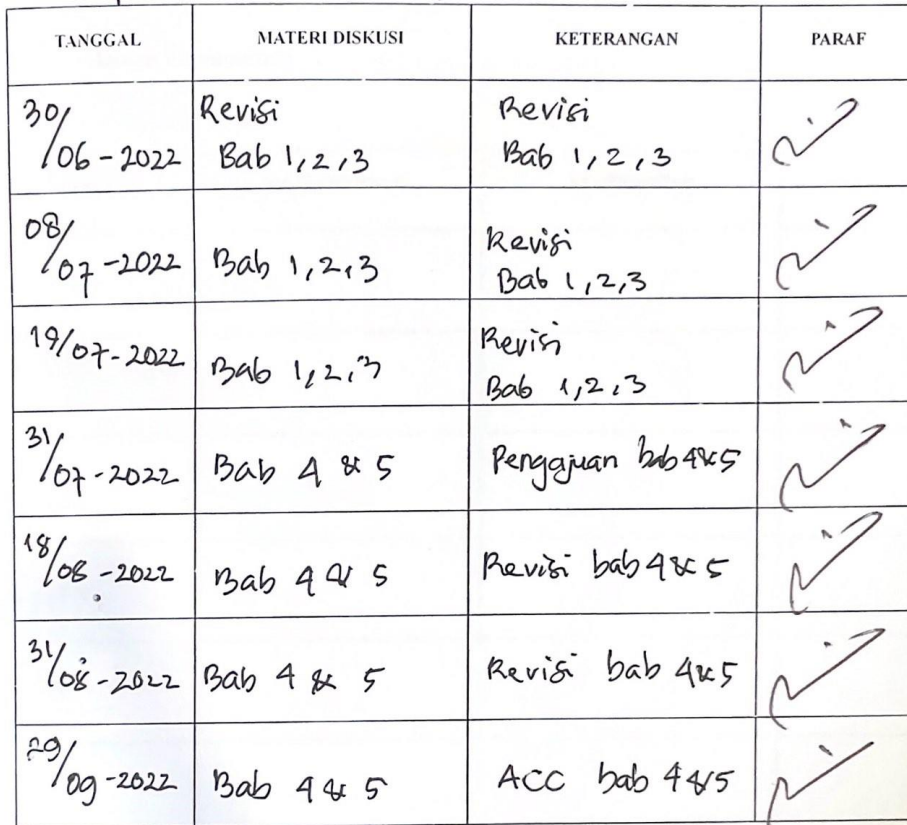 TANGGAL MATERI DISKUSI KETERANGAN PARAF
30/06-2022 Revisi Revisi
Bab 1,2,3 Bab 1,2,3
08/07-2022 Bab 1,2,3 Revisi
Bab 1,2,3
19/07-2022 Bab 1,2,3 Revisi
Bab 1,2,3
31/07-2022 Bab 4 & 5 Pengajuan bab 4&5
18/08-2022 Bab 4 & 5 Revisi bab 4 & 5
31/08-2022 Bab 4 & 5 Revisi bab 4&5
29/09-2022 Bab 4 & 5 ACC bab 4&5